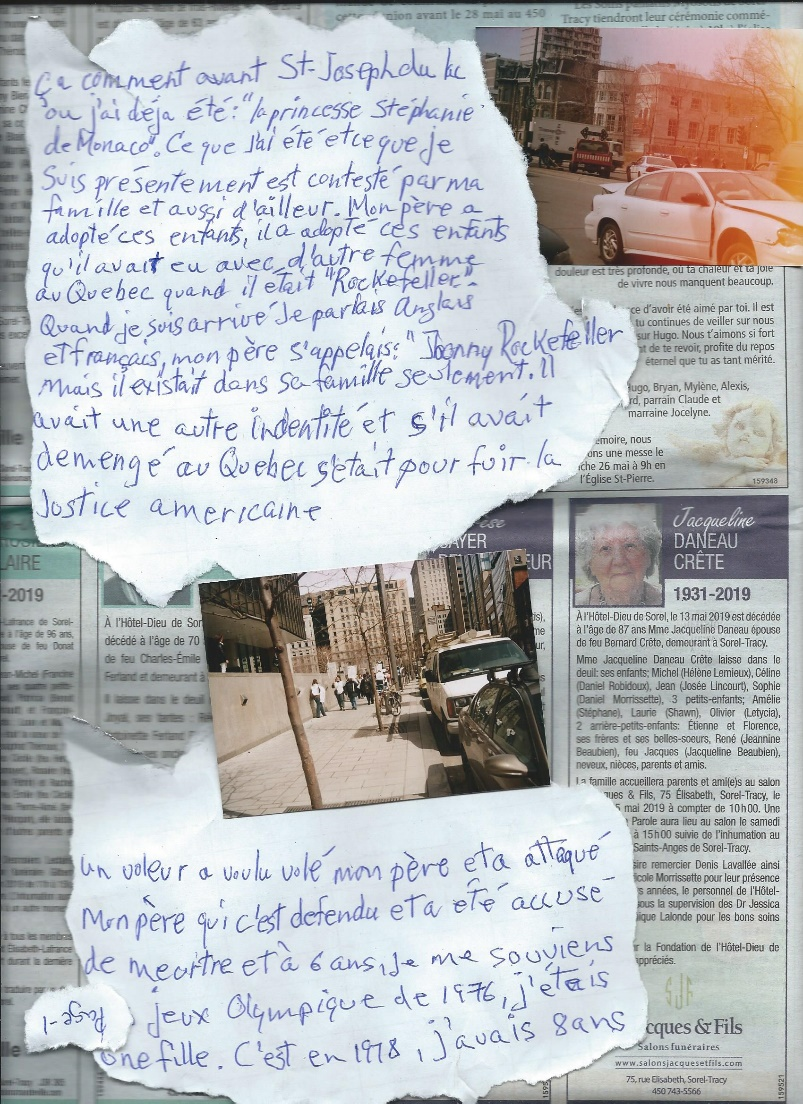 nion avant le 28 mai au 450
Tracy tiendront leur cérémonie commé-
Ça comment avant St-Joseph du lac
ou j'ai déja été: "la princesse Stéphanie
de Monaco". Ce que j'ai été et ce que je
Suis présentement est contesté par ma
famille et aussi d'ailleur. Mon père a
adopté ces enfants, il a adopté ces enfants
qu'il avait eu avec d'autre femme
au Quebec quand il était "Rockefeller".
Quand je suis arrivé Je parlais Anglais
et français, mon père s'appelais: "Jhonny Rockefeller
mais il existait dans sa famille seulement. Il
avait une autre indentité et s'il avait
demengé au Quebec s'était pour fuir la
Justice americaine
douleur est très profonde, où ta chaleur et ta joie
de vivre nous manquent beaucoup.
ce d'avoir été aimé par toi. Il est
tu continues de veiller sur nous
sur Hugo. Nous t'aimons si fort
nt de te revoir, profite du repos
éternel que tu as tant mérité.
Hugo, Bryan, Mylène, Alexis,
rd, parrain Claude et
marraine Jocelyne.
émoire, nous
ons une messe le
che 26 mai à 9h en
l'Église St-Pierre.
159348
LAIRE
-2019
À l'Hôtel-Dieu de Sor
décédé à l'âge de 70
de feu Charles-Émile
Ferland et demeurant à
SAYER
EUR
Jacqueline
DANEAU
CRÊTE
1931-2019
À l'Hôtel-Dieu de Sorel, le 13 mai 2019 est décédée
à l'âge de 87 ans Mme Jacqueline Daneau épouse
de feu Bernard Crête, demeurant à Sorel-Tracy.
Mme Jacqueline Daneau Crête laisse dans le
deuil: ses enfants; Michel (Hélène Lemieux), Céline
(Daniel Robidoux), Jean (Josée Lincourt), Sophie
(Daniel Morrissette), 3 petits-enfants; Amélie
(Stéphane), Laurie (Shawn), Olivier (Letycia),
2 arrière-petits-enfants: Étienne et Florence,
ses frères et ses belles-soeurs, René (Jeannine
Beaubien), feu Jacques (Jacqueline Beaubien),
neveux, nièces, parents et amis.
La famille accueillera parents et ami(e)s au salon
ques & Fils, 75 Élisabeth, Sorel-Tracy, le
5 mai 2019 à compter de 10h00. Une
Parole aura lieu au salon le samedi
à 15h00 suivie de l'inhumation au
Saints-Anges de Sorel-Tracy.
ire remercier Denis Lavallée ainsi
icole Morrissette pour leur présence
s années, le personnel de l'Hôtel-
sous la supervision des Dr Jessica
ique Lalonde pour les bons soins
r la Fondation de l'Hôtel-Dieu de
appréciés.
SJF
cques & Fils
Salons funéraires
www.salonsjacquesetfils.com
75, rue Elisabeth, Sorel-Tracy
450 743-5566
159521
un voleur a voulu volé mon père et a attaqué
Mon père qui c'est defendu et a été accusé
de meurtre et à 6 ans, Je me souviens
jeux Olympique de 1976, j'étais
une fille. C'est en 1978, j'avais 8 ans
Page-1